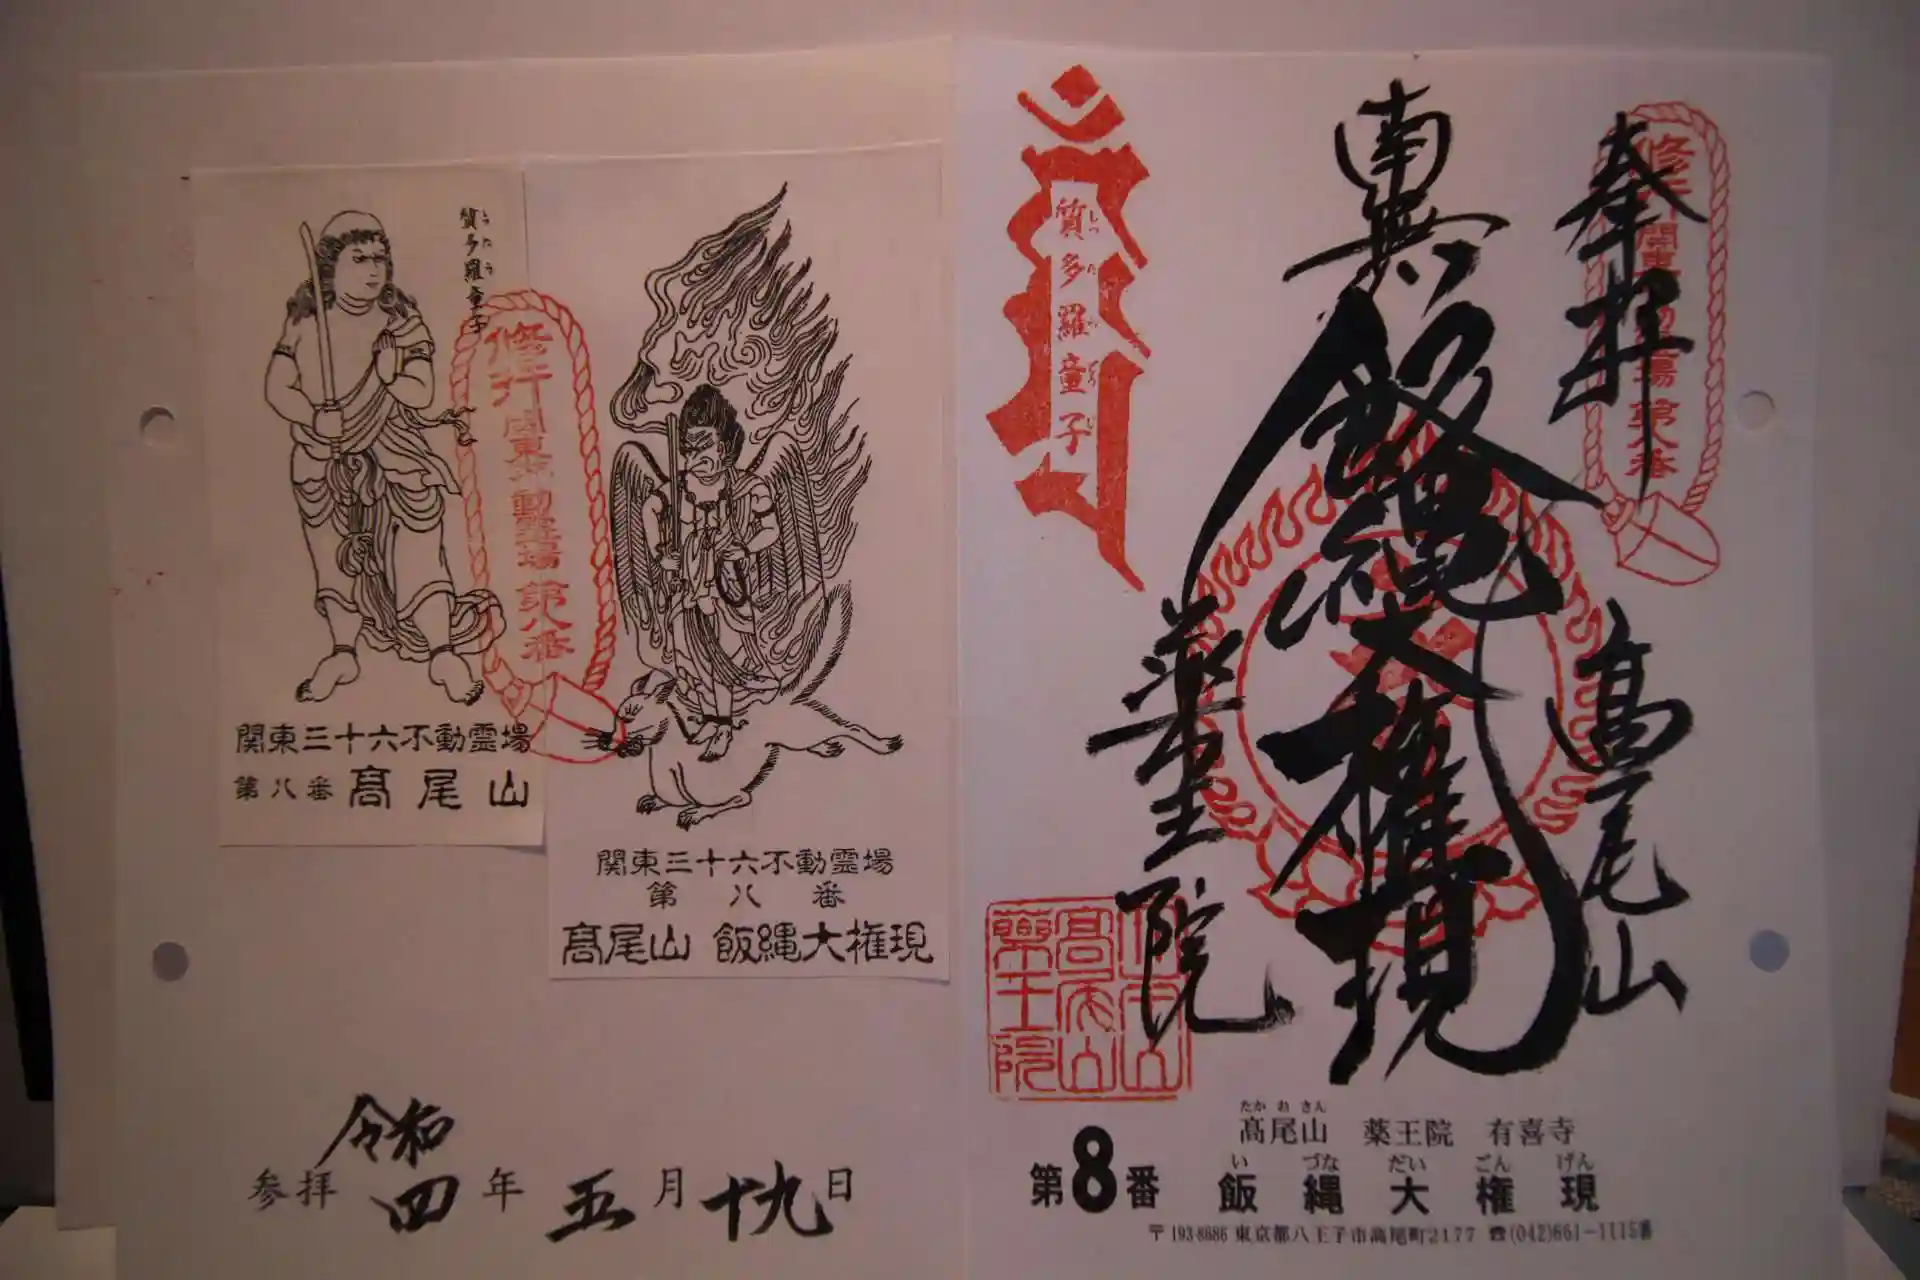 質多羅童子
修行
関東不動霊場
第八番
関東三十六不動霊場
第八番 髙尾山
関東三十六不動霊場
第八番
髙尾山 飯縄大権現
参拝 令和四年 五月 十九日
奉拝
修行
関東不動霊場
第八番
髙尾山
南無飯縄大権現
薬王院
質多羅童子
髙尾山
薬王院
たかおさん
髙尾山 薬王院 有喜寺
いづなだいごんげん
第8番 飯縄大権現
〒193-8686 東京都八王子市高尾町2177 ☎(042)661-1115番